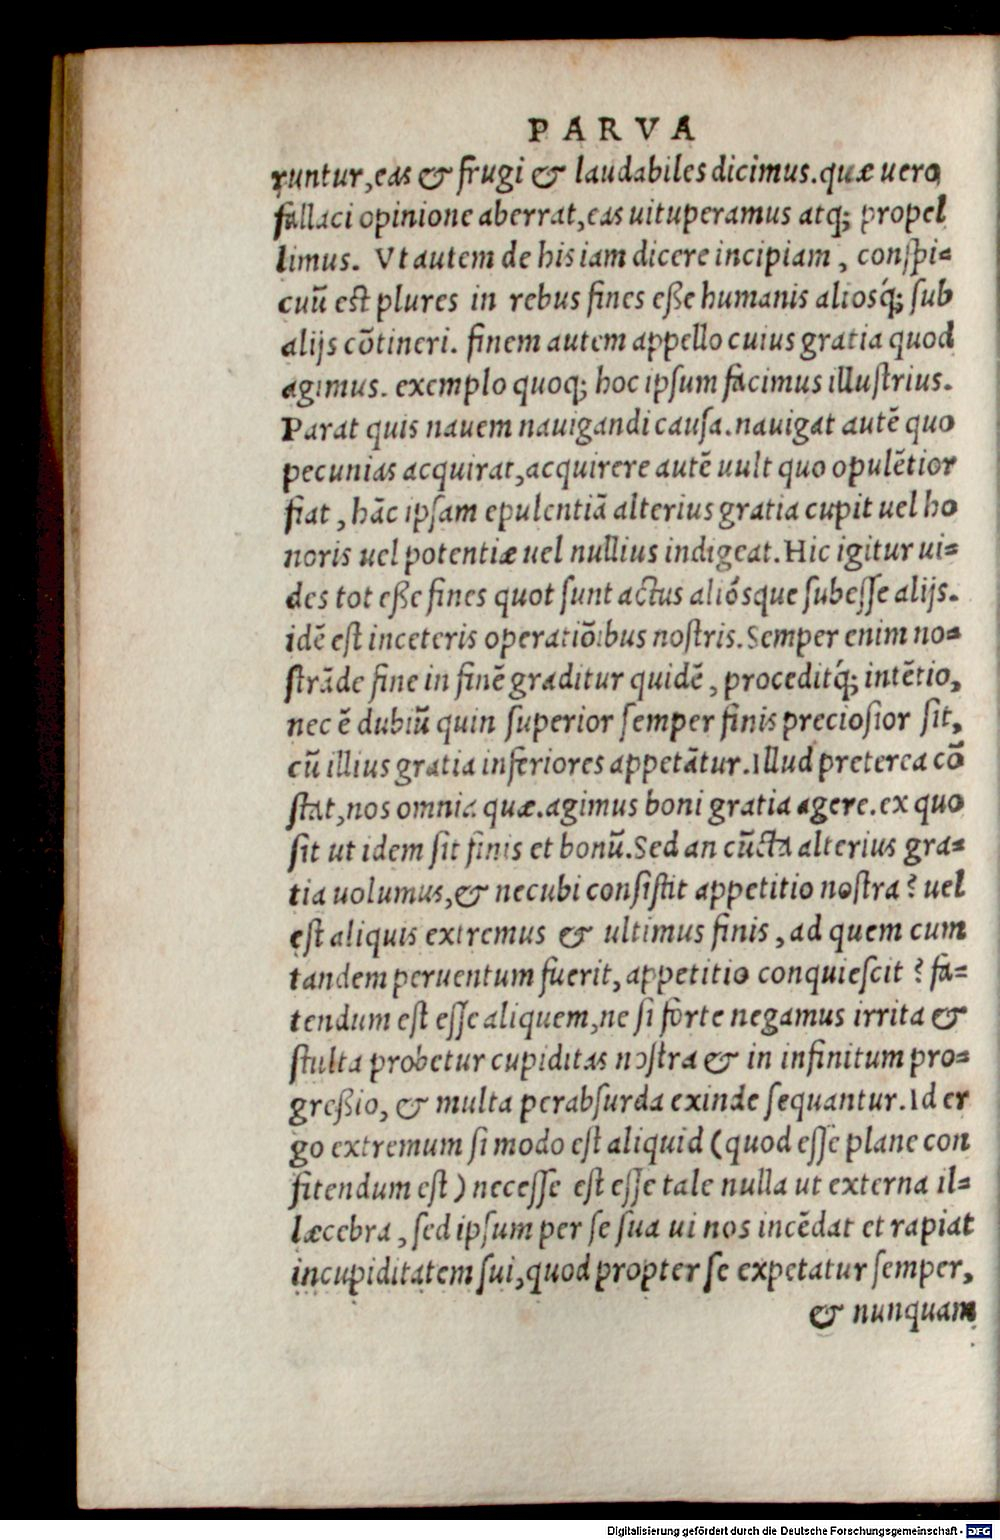 PARVA
runtur, eas & frugi & laudabiles dicimus. quæ uero
fallaci opinione aberrat, eas uituperamus atq; propel
limus. Vt autem de his iam dicere incipiam, conspi=
cuũ est plures in rebus fines eße humanis aliosq́; sub
alijs cõtineri. finem autem appello cuius gratia quod
agimus. exemplo quoq; hoc ipsum facimus illustrius.
Parat quis nauem nauigandi causa. nauigat autẽ quo
pecunias acquirat, acquirere autẽ uult quo opulẽtior
fiat, hãc ipsam epulentiã alterius gratia cupit uel ho
noris uel potentiæ uel nullius indigeat. Hic igitur ui=
des tot eße fines quot sunt actus aliósque subesse alijs.
idẽ est inceteris operatiõibus nostris. Semper enim no=
strãde fine in finẽ graditur quidẽ, proceditq́; intẽtio,
nec ẽ dubiũ quin superior semper finis preciosior sit,
cũ illius gratia inferiores appetãtur. Illud preterea cõ
stat, nos omnia quæ. agimus boni gratia agere. ex quo
sit ut idem sit finis et bonũ. Sed an cũcta alterius gra=
tia uolumus, & necubi consistit appetitio nostra? uel
est aliquis extremus & ultimus finis, ad quem cum
tandem peruentum fuerit, appetitio conquiescit? fa=
tendum est esse aliquem, ne si forte negamus irrita &
stulta probetur cupiditas nostra & in infinitum pro=
greßio, & multa perabsurda exinde sequantur. Id er
go extremum si modo est aliquid (quod esse plane con
fitendum est) necesse est esse tale nulla ut externa il=
læcebra, sed ipsum per se sua ui nos incẽdat et rapiat
incupiditatem sui, quod propter se expetatur semper,
& nunquam
Digitalisierung gefördert durch die Deutsche Forschungsgemeinschaft - DFG